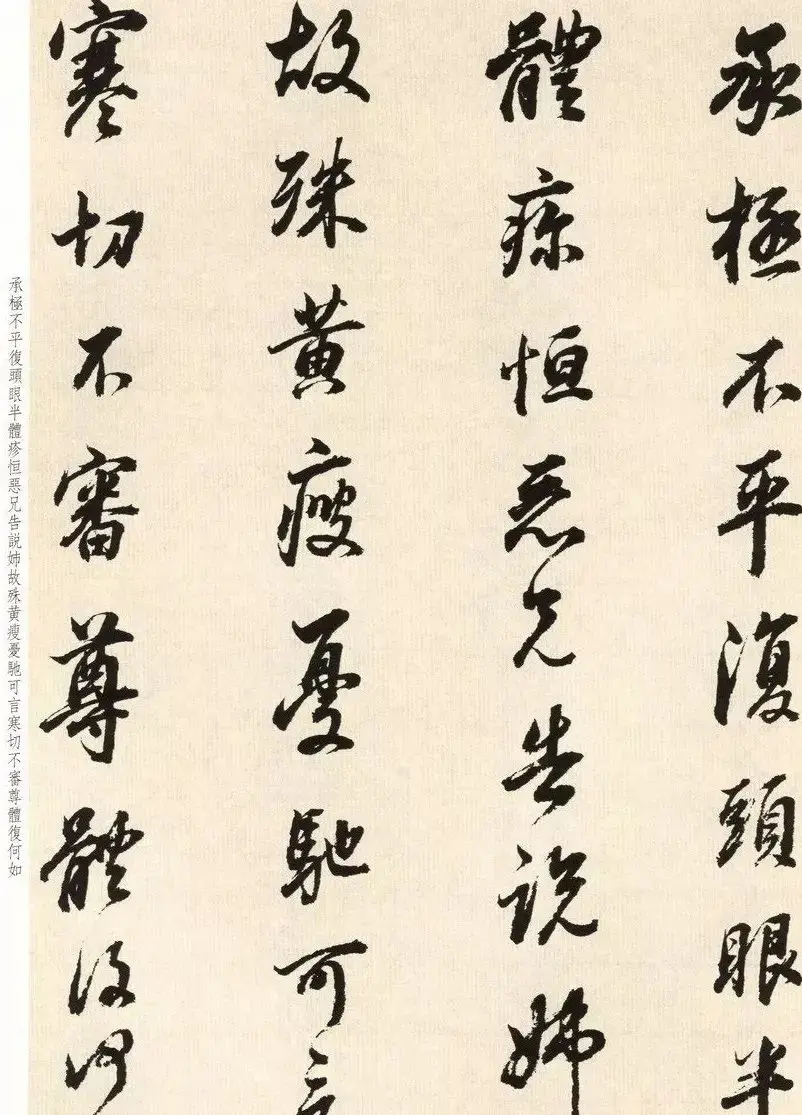 承極不平復頭眼半
體疹恒惡兄告說姊
故殊黄瘦憂馳可言
寒切不審尊體復何
承極不平復頭眼半體疹恒惡兄告說姉故殊黄瘦憂馳可言寒切不審尊體復何如